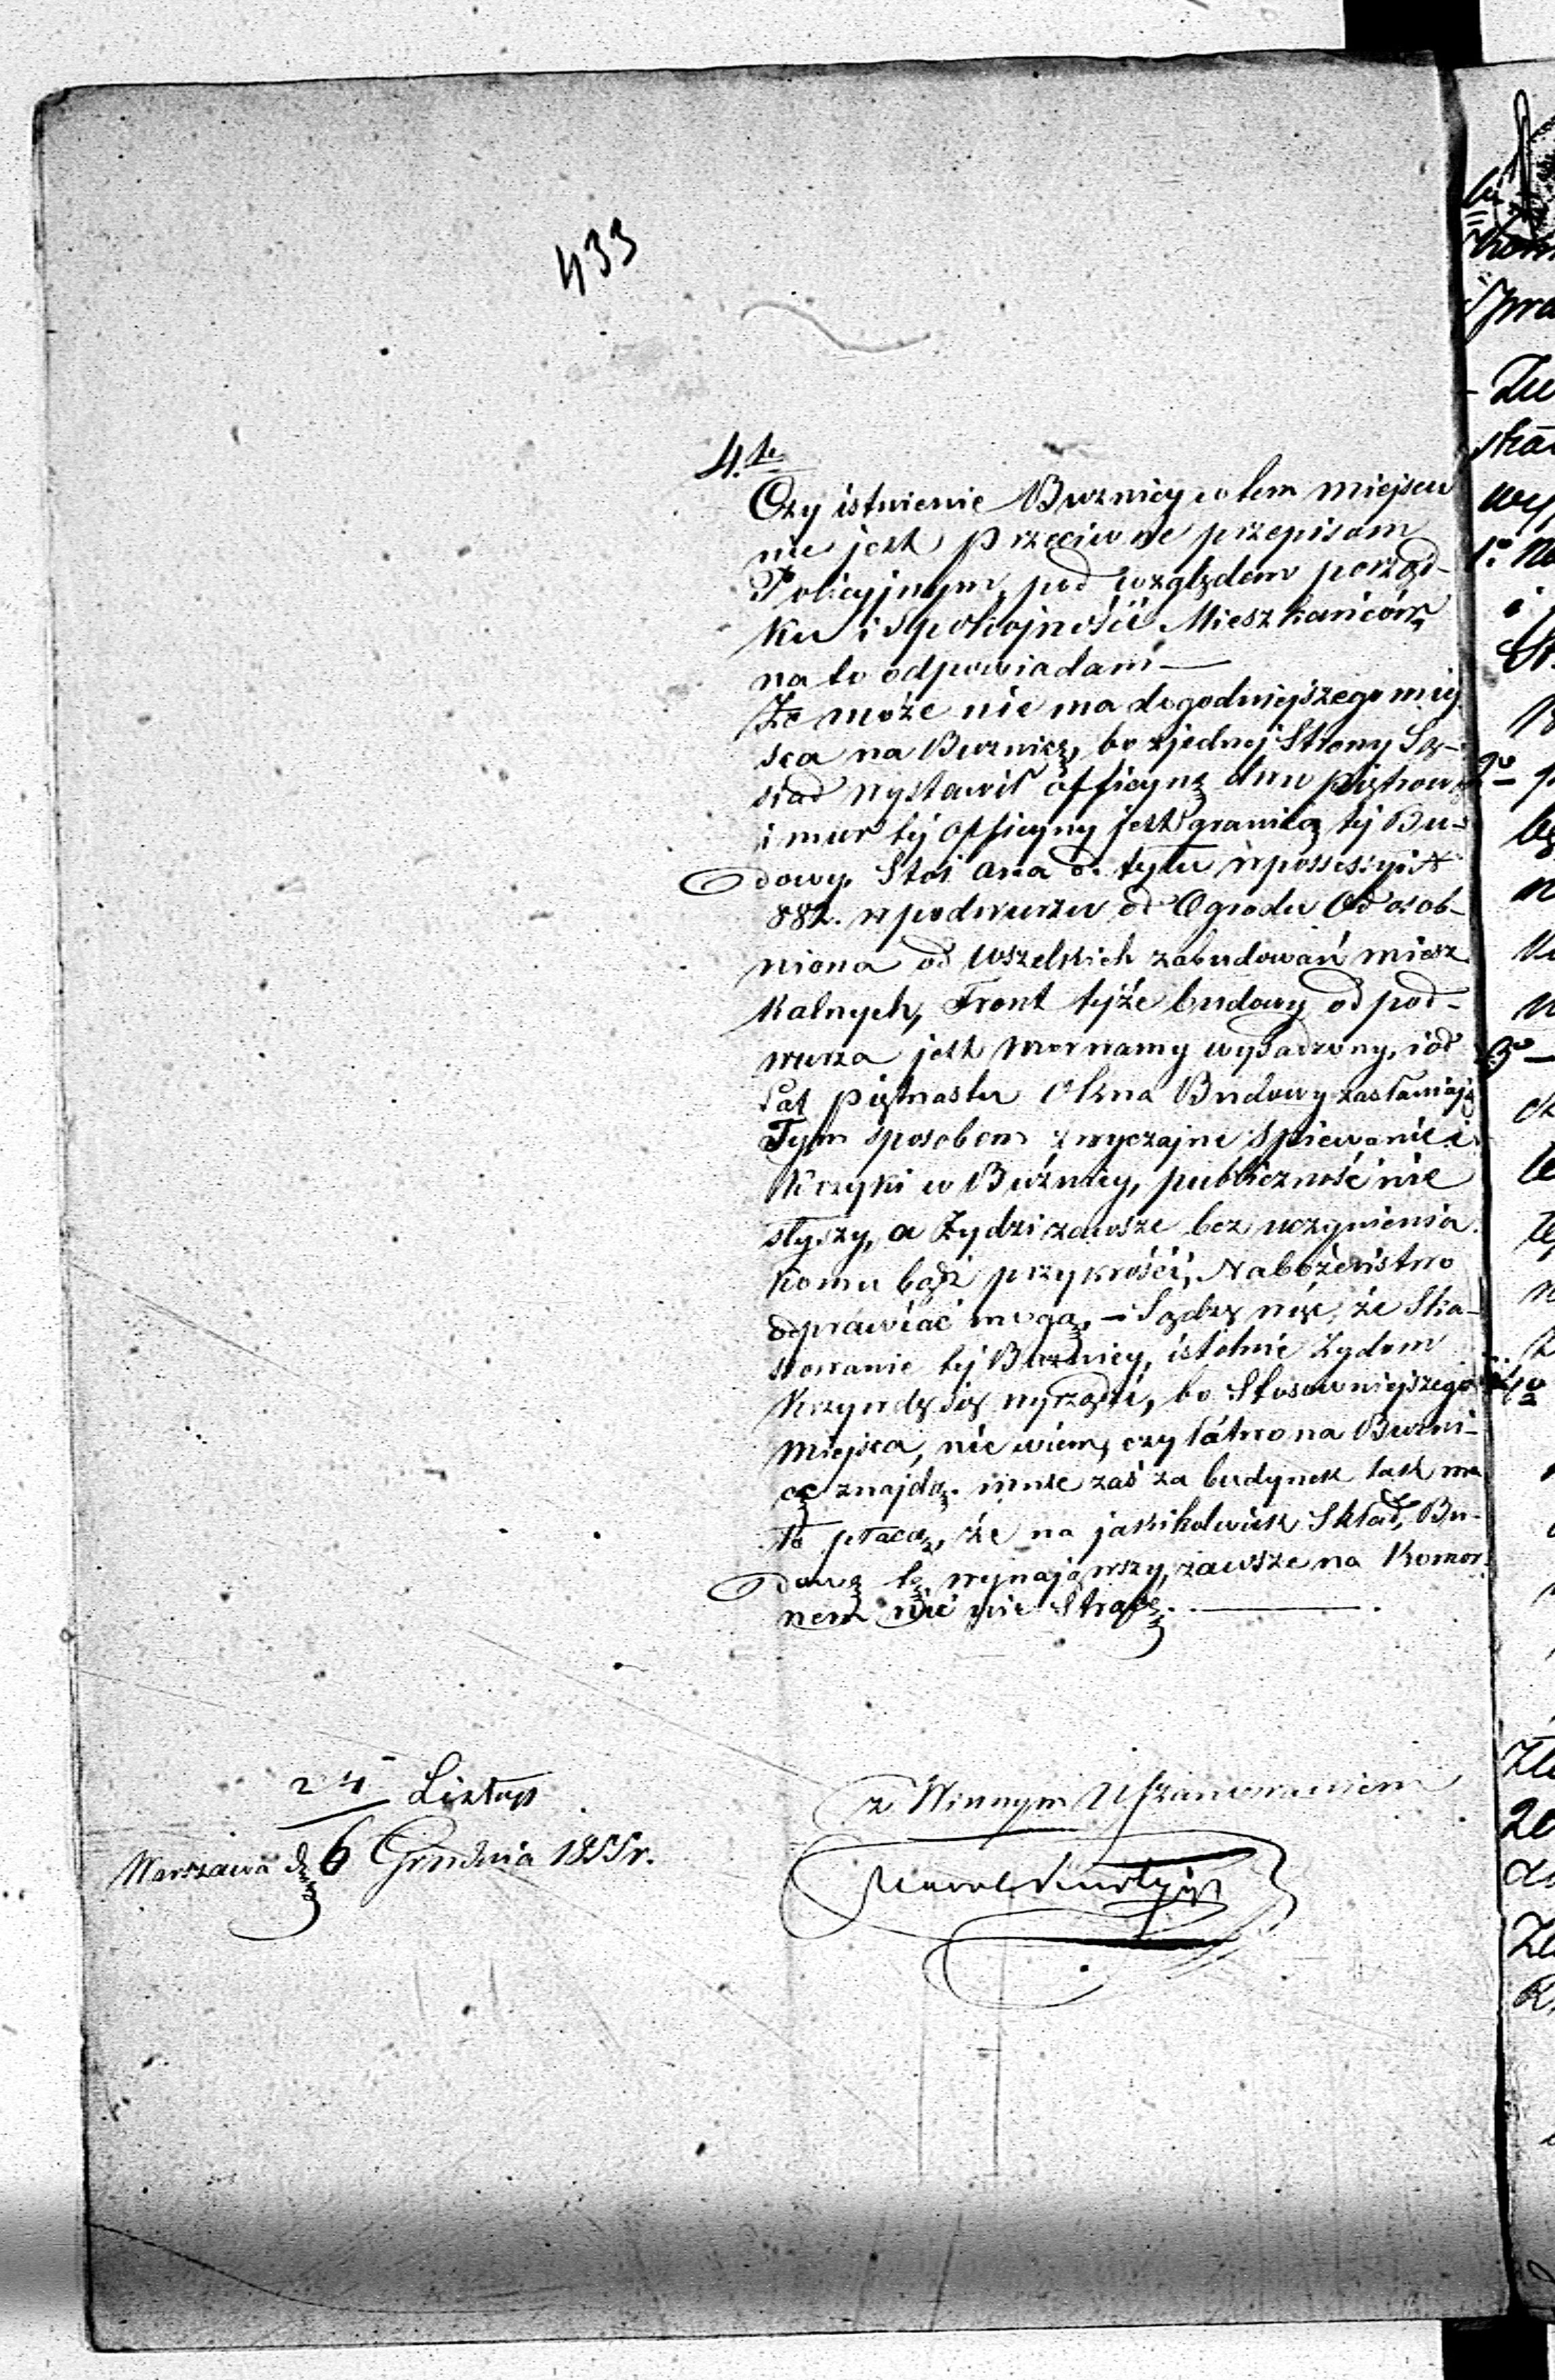 433
4.te
Czy istnienie Buznicy w tem miejscu
nie jest przeciwne przepisom
Policyjnym, pod względem porząd-
ku i Spokojności Mieszkańców,
na to odpowiadam —
Że może nie ma dogodniejszego miej
sca na Buznicę, bo z jednej Strony Są-
siad wystawił officynę dwu piętrową
i mur tej officyny jest granicą tej Bu-
dowy. Stoi ona od tyłu w possessyi N
882. w podwurzu od Ogrodu Od osob-
niona od wszelkich zabudowań miesz
kalnych, Front tejże budowy od pod-
wurza jest morwamy wysadzony, i od
Lat piętnastu Okna Budowy zasłaniają
Tym sposobem zwyczajne Spiewanie i
Krzyki w Buźnicy, publiczność nie
słyszy, a Żydzi zawsze bez uczynienia
komu bądź przykrości, Nabożeństwo
odprawiać mogą, — Sądzę więc, że Ska-
sowanie tej Buznicy, istotnie Żydom
Krzywdę się wyrządzi, bo Stosowniejszego
miejsca, nie wiem, czy łatwo na Buzni-
cę znajdą. mnie zaś za budynek tak ma
ło płacą, że na jakikolwiek Skład, Bu-
dowę tę wynająwszy, zawsze na Komor-
nem nic nie Stracę. —
z Winnym Uszanowaniem
24 Listop
Warszawa d. 6 Grudnia 1855 r.